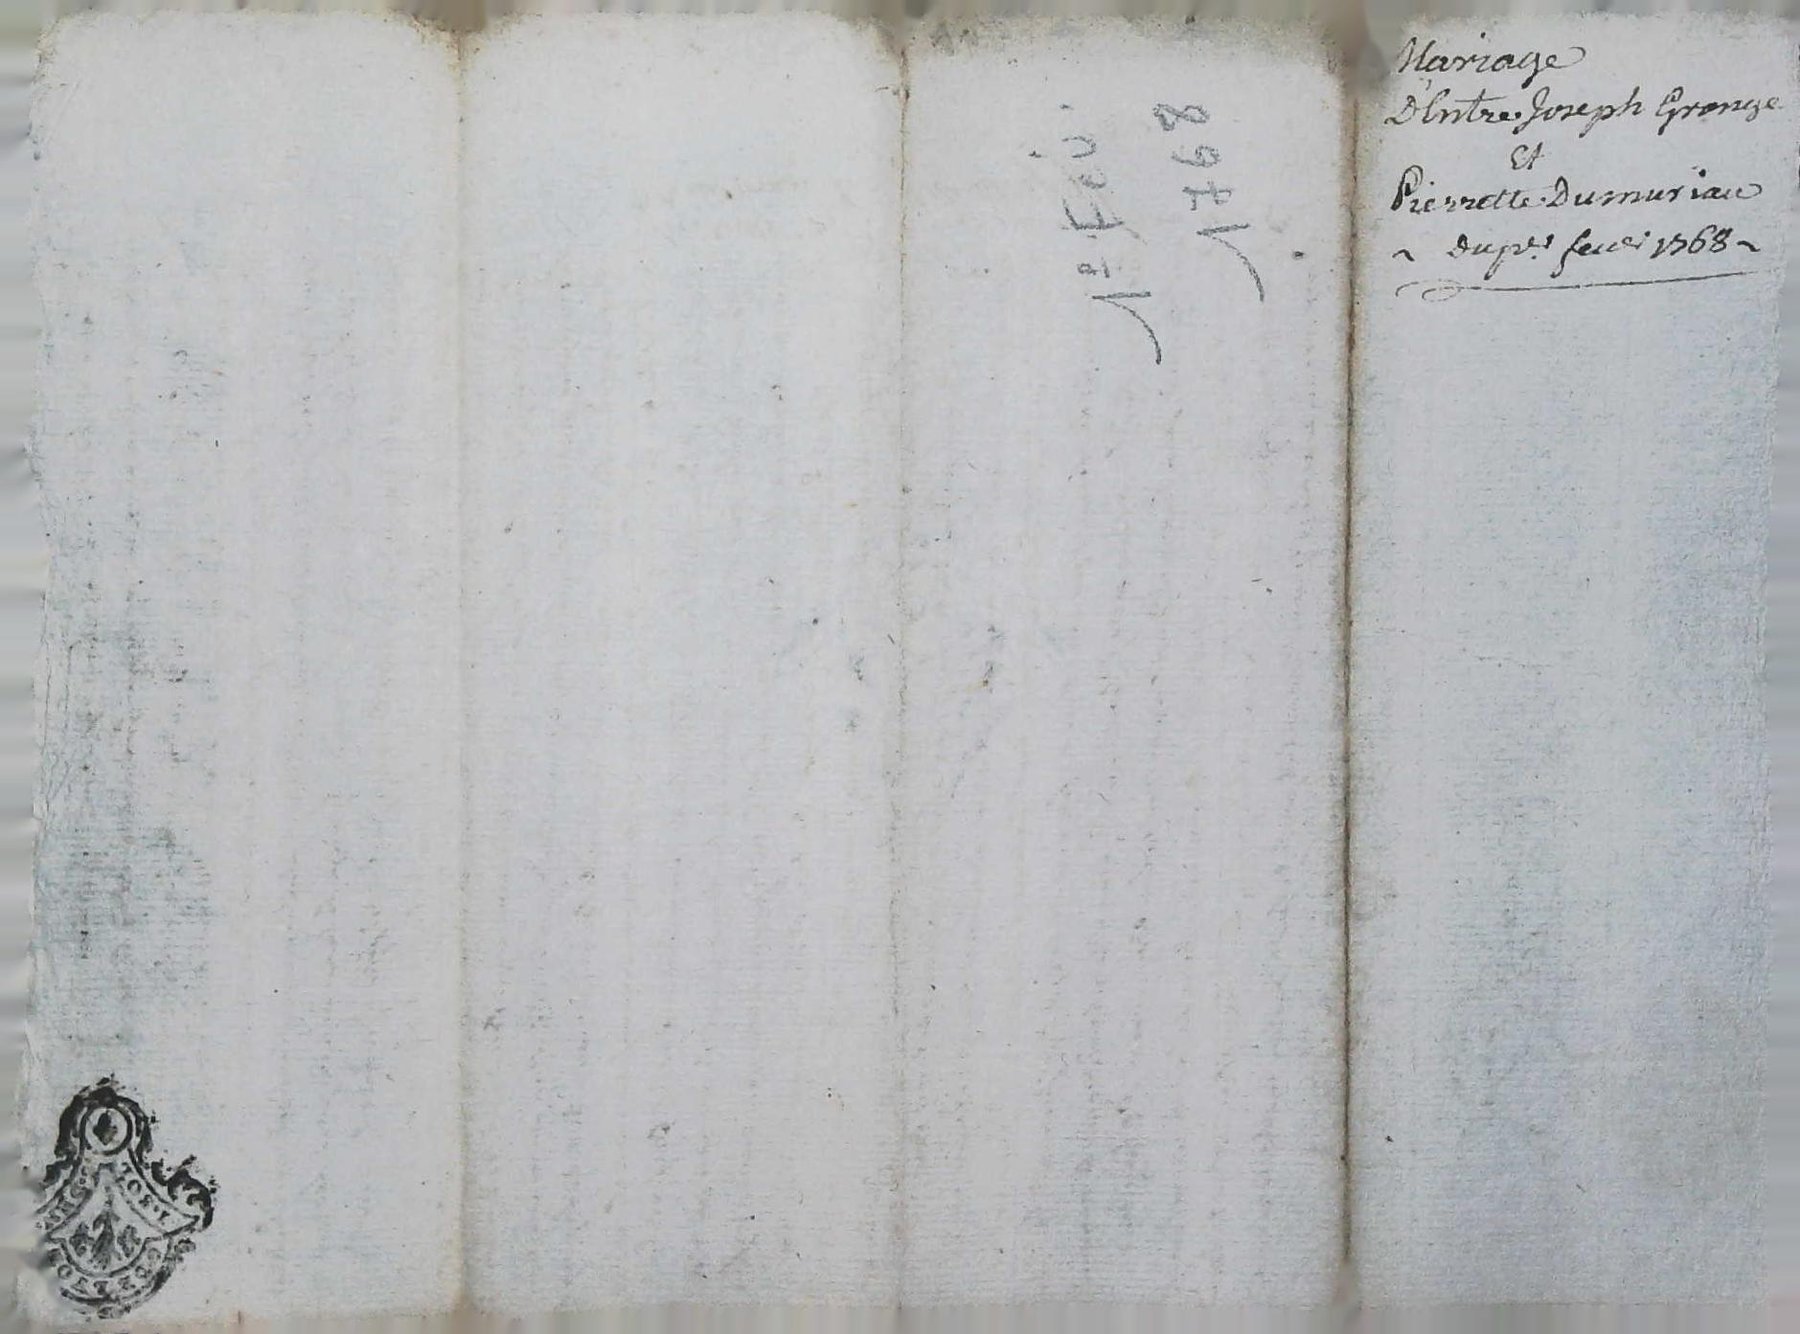 Mariage
D'Entre Joseph Grange
Et
Pierrette Dumuriau
~ dupr. feuer 1768 ~
1er Fév.
1768